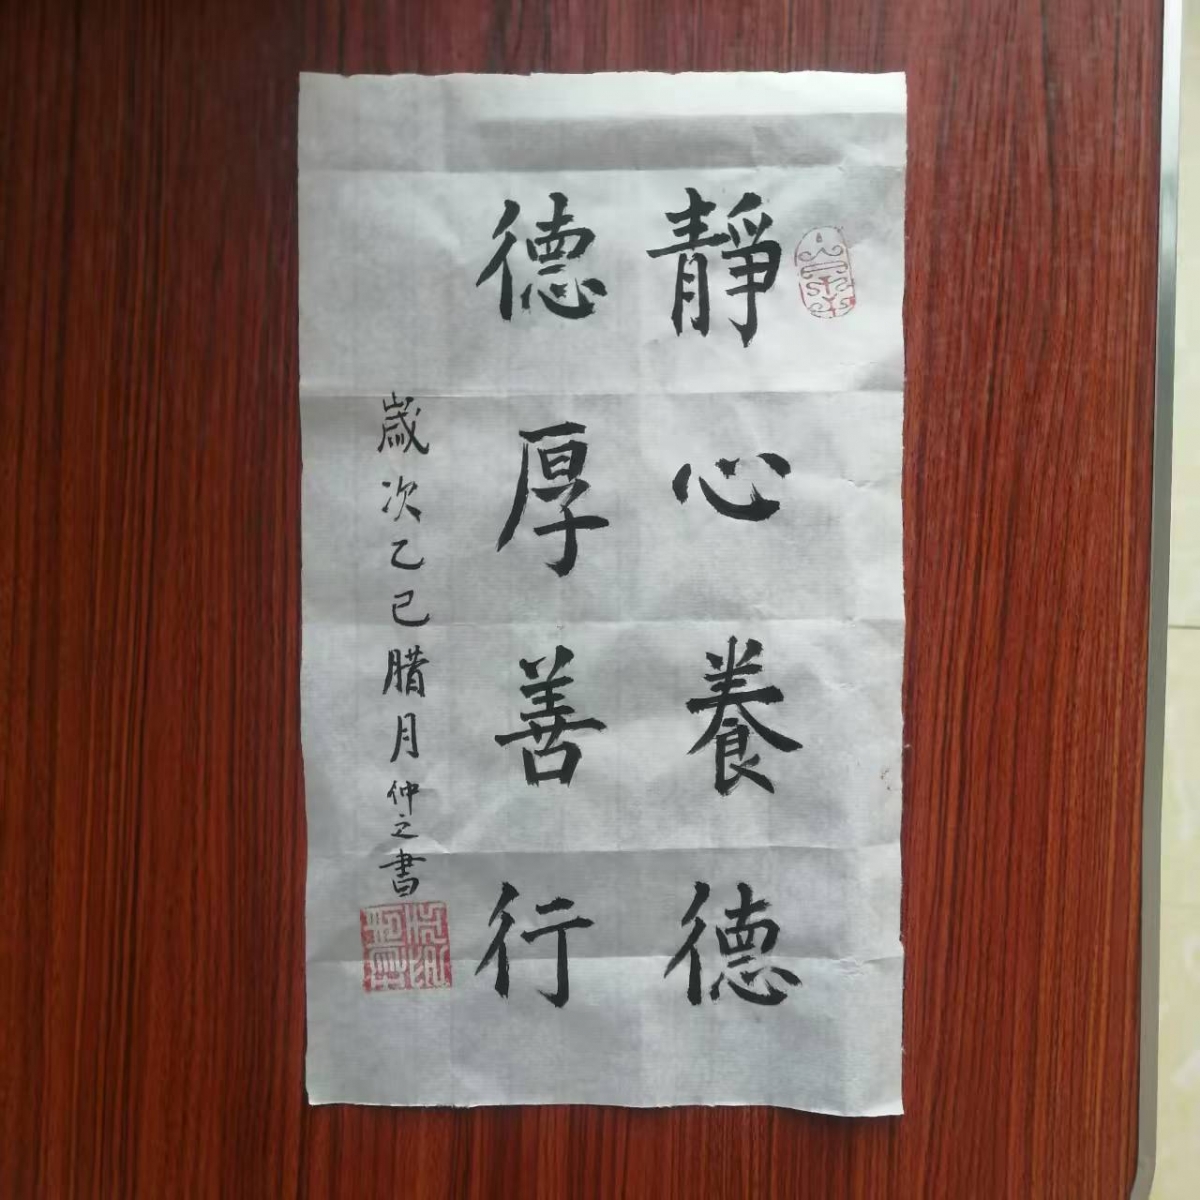 靜心養德
德厚善行
歲次乙巳腊月仲之書